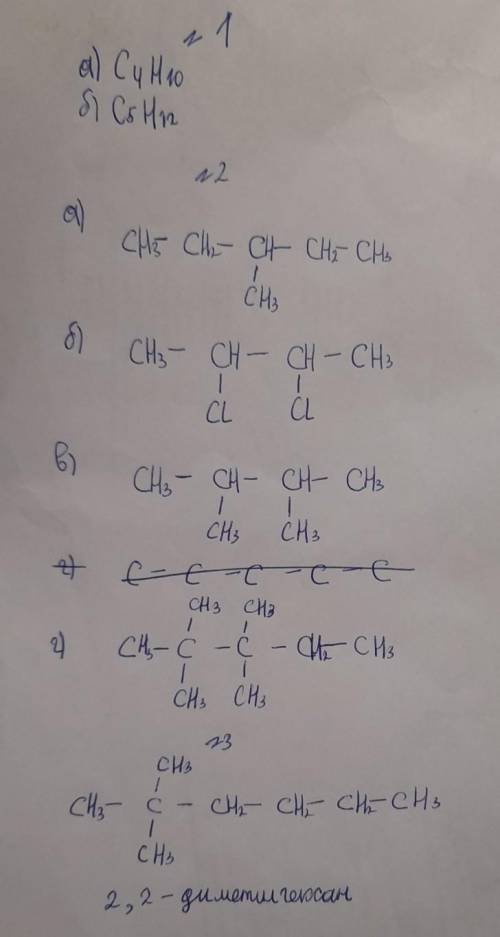 №1
а) C4H10
б) C5H12
№2
а)
CH3- CH2- CH- CH2- CH3
CH3
б)
CH3- CH - CH - CH3
Cl Cl
в)
CH3- CH- CH- CH3
CH3 CH3
г) C - C - C - C - C
CH3 CH3
г) CH3- C - C - CH2- CH3
CH3 CH3
№3
CH3
CH3- C - CH2- CH2- CH2- CH3
CH3
2,2-диметилгексан